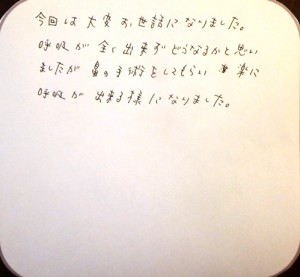 今回は大変お世話になりました。
呼吸が全く出来ずどうなるかと思い
ましたが鼻の手術をしてもらい楽に
呼吸が出来る様になりました。